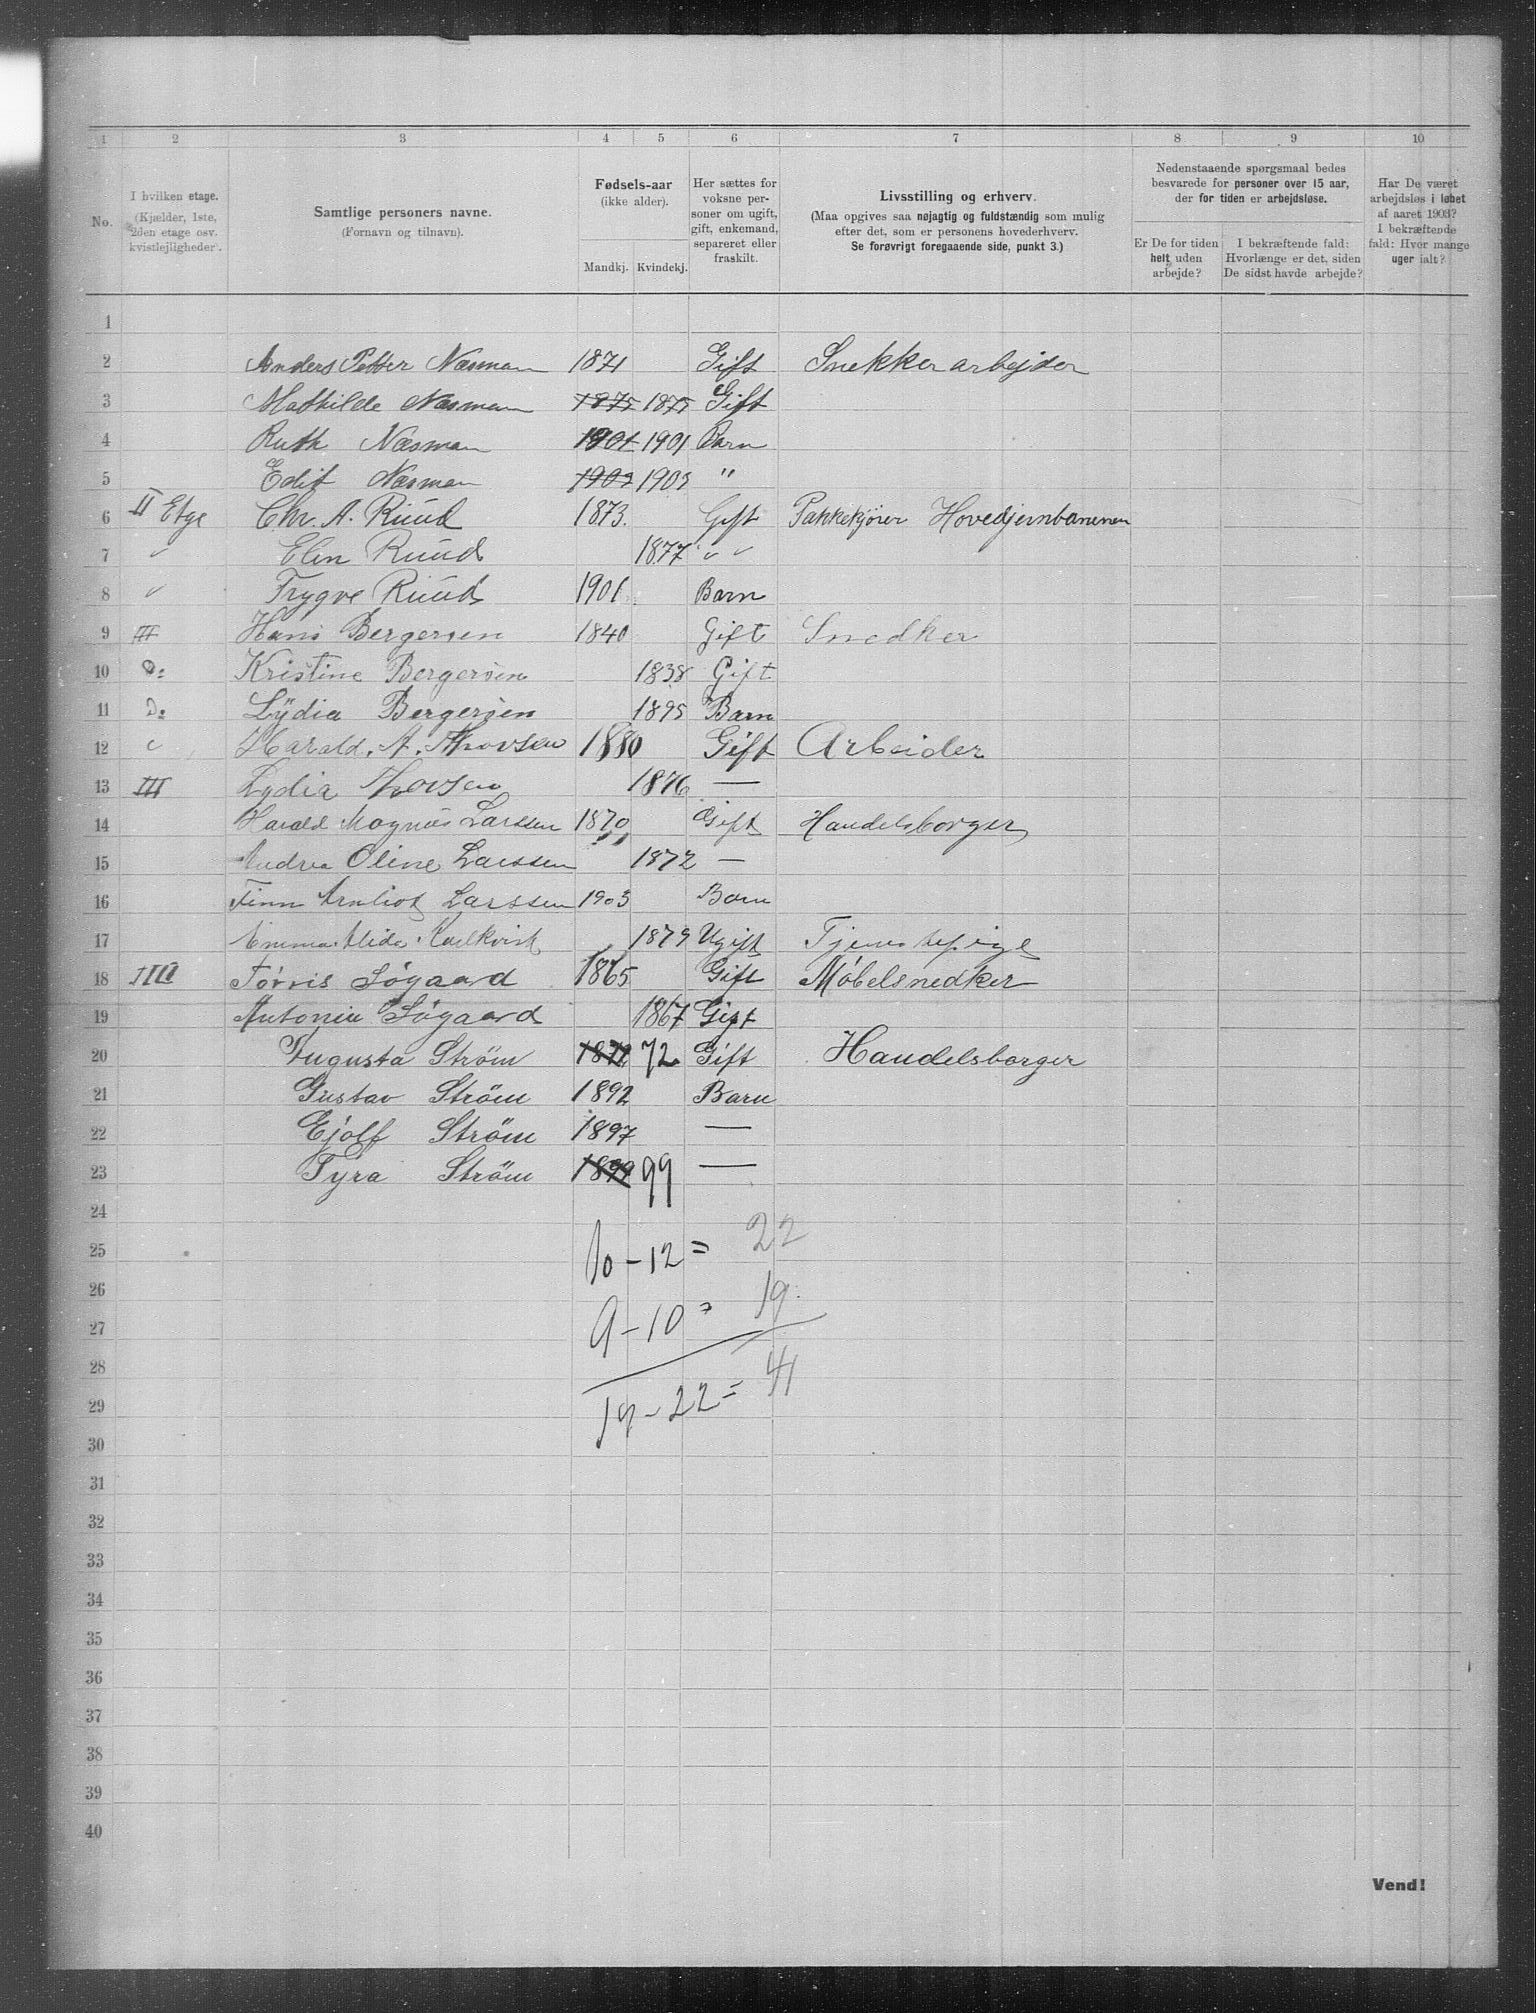 1 2 3 4 5 6 7 8 9 10
No.
I hvilken etage. (Kjælder, 1ste, 2den etage osv. kvistlejligheder).
Samtlige personers navne. (Fornavn og tilnavn).
Fødsels-aar (ikke alder). Mandkj. Kvindekj.
Her sættes for voksne personer om ugift, gift, enkemand, separeret eller fraskilt.
Livsstilling og erhverv. (Maa opgives saa nøjagtig og fuldstændig som mulig efter det, som er personens hovederhverv. Se forøvrigt foregaaende side, punkt 3.)
Nedenstaaende spørgsmaal bedes besvarede for personer over 15 aar, der for tiden er arbejdsløse.
Er De for tiden helt uden arbejde?
I bekræftende fald: Hvorlænge er det, siden De sidst havde arbejde?
Har De været arbejdsløs i løbet af aaret 1903? I bekræftende fald: Hvor mange uger ialt?
1
2 Anders Petter Næsman 1871 Gift Snekkerarbejder
3 Mathilde Næsman 1875 1875 Gift
4 Ruth Næsman 1901 1901 Barn
5 Edit Næsman 1903 1903 "
6 II Etge Chr. A. Ruud 1873. Gift Pakkekjører Hovedjernbanenen
7 " Elen Ruud 1877 " "
8 " Trygve Ruud 1901 Barn
9 III Hans Bergersen 1840 Gift Snedker
10 Do: Kristine Bergersen 1838 Gift
11 Do: Lydia Bergersen 1895 Barn
12 " Harald. A. Thovsen 1880 Gift Arbeider
13 III Lydia Thovsen 1876 —
14 Harald Magnus Larssen 1870 Gift Handelsborger
15 Andrea Oline Larssen 1872 —
16 Finn Arnliot Larssen 1903 Barn
17 Emma Alida Karlkvist 1879 Ugift Tjenestepige
18 IIII Tørris Søgaard 1865 Gift Møbelsnedker
19 Antonie Søgaard 1867 Gift
20 Augusta Ström 1872 72 Gift Handelsborger
21 Gustav Ström 1892 Barn
22 Ejolf Ström 1897 —
23 Tyra Ström 1899 99 —
24
25 10 - 12 = 22
26
27 9 - 10 = 19.
28
29 19 - 22 = 41
30
31
32
33
34
35
36
37
38
39
40
Vend!